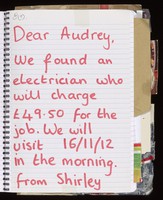 Dear Audrey,
We found an
electrician who
will charge
£49.50 for the
job. We will
visit 16/11/12
in the morning.
from Shirley